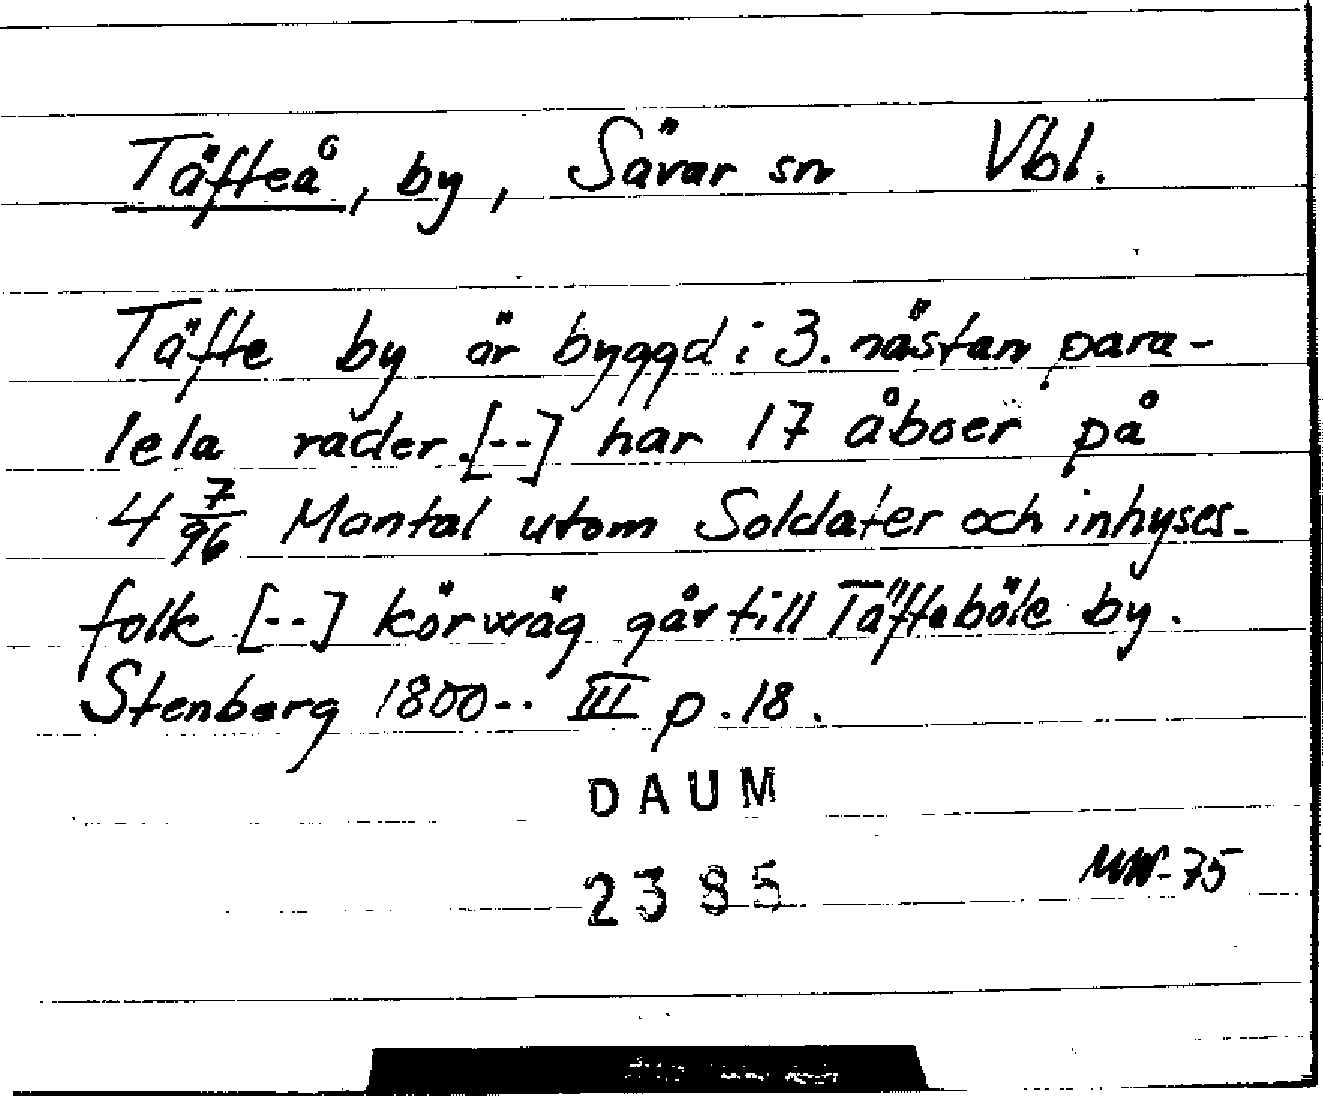 Täfteå, by, Sävar sn Vbl.
Täfte by är byggd i 3. nästan para-
lela rader. [--] har 17 åboer på
4 7/96 Mantal utom Soldater och inhyses-
folk [--] körwäg går till Täfteböle by.
Stenberg 1800-- III p. 18.
DAUM
2385
MW-75